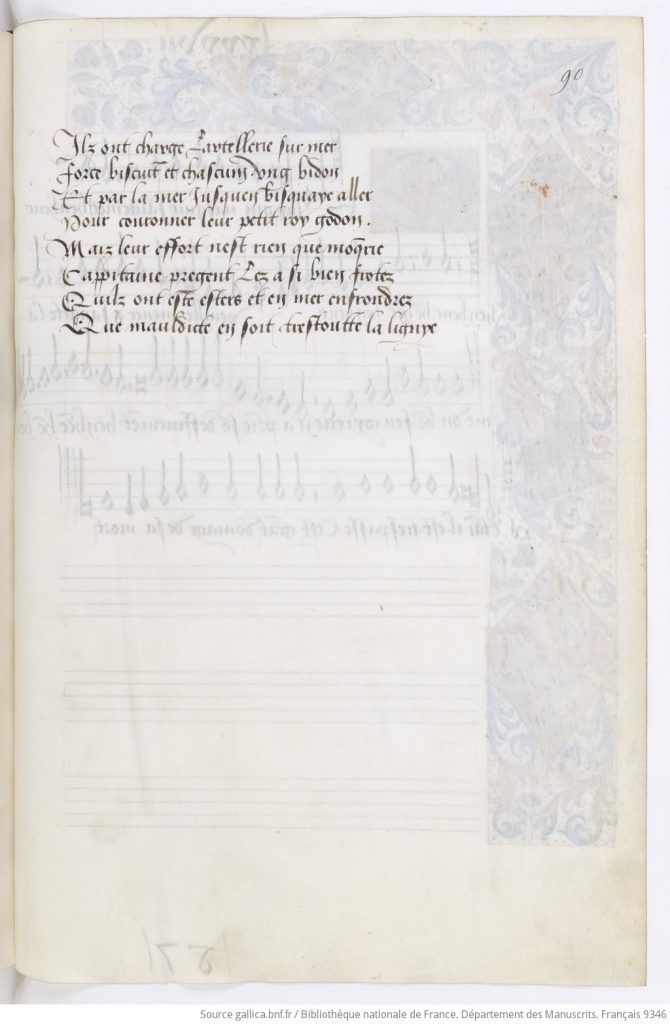 90
Ilz ont charge Lartellerie sur mer
Force biscuit et chascun ung bidon
Et par la mer Jusquen bisquaye aller
Pour couronner leur petit roy godon.
Maiz leur effort nest rien que moqrie
Cappitaine pregent Lez a si bien frotez
Quilz ont este esters et en mer enfondrez
Que mauldicte en soit trestoutte la lignye
Source gallica.bnf.fr / Bibliothèque nationale de France. Département des Manuscrits. Français 9346